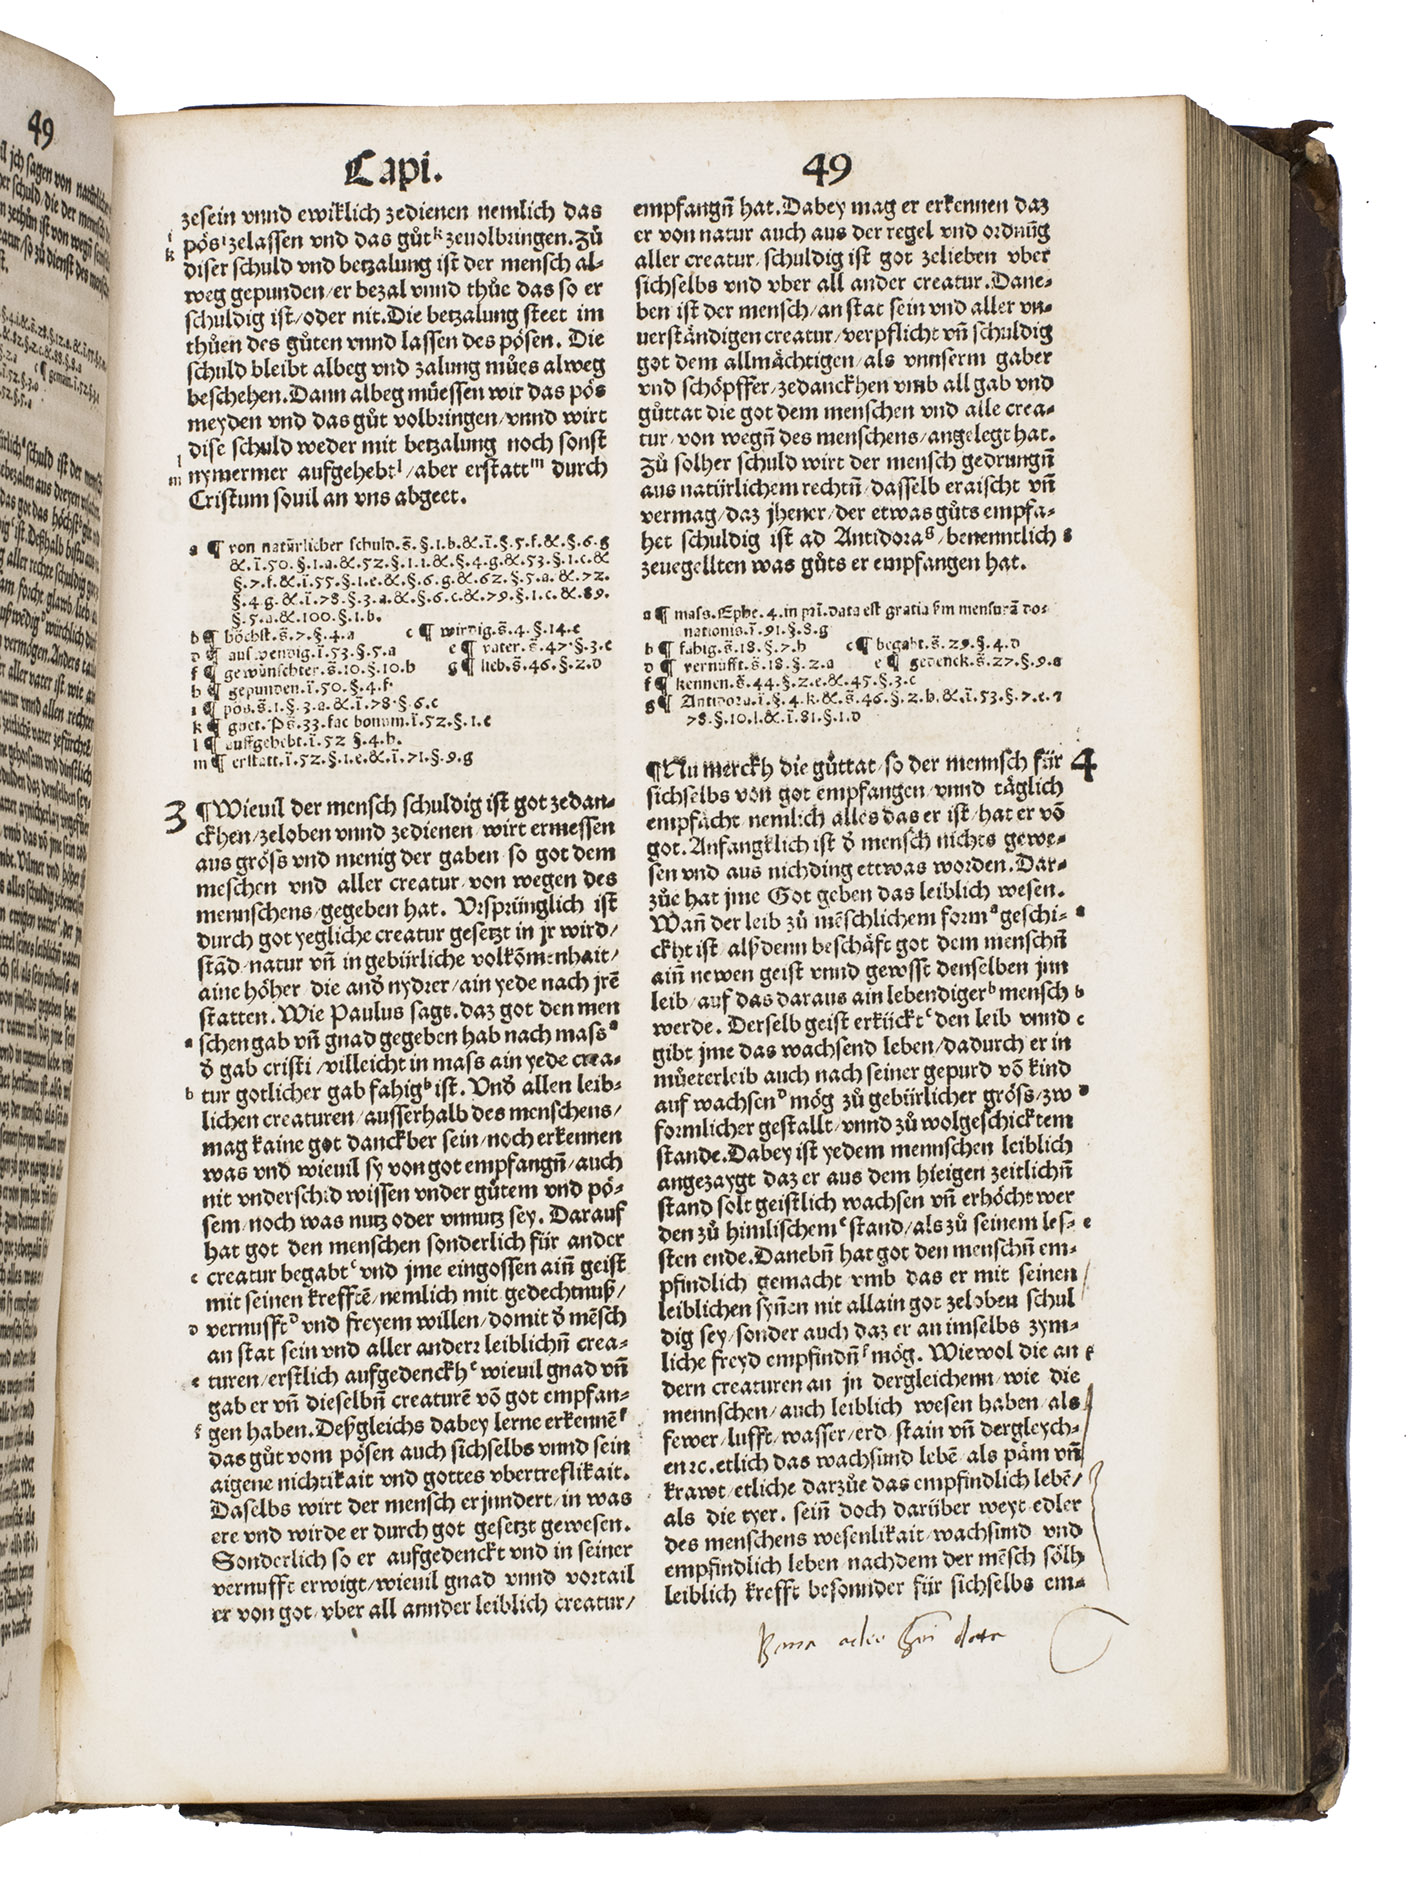 Capi. 49
zesein vnnd ewiklich zedienen nemlich das
i pösⁱ zelassen vnd das gůtᵏ zeuolbringen. Zů
k diser schuld vnd betzalung ist der mensch al-
weg gepunden/er bezal vnnd thůe das so er
schuldig ist/oder nit. Die betzalung steet im
thůen des gůten vnnd lassen des pösen. Die
schuld bleibt albeg vnd zalung můes alweg
beschehen. Dann albeg müessen wir das pös
meyden vnd das gůt volbringen/vnnd wirt
dise schuld weder mit betzalung noch sonst
l nymermer aufgehebtˡ/aber erstattᵐ durch
m Cristum souil an vns abgeet.
a ¶ von natürlicher schuld. s̄. §. 1. b. &. ī. §. 5. f. &. §. 6. g
&. ī. 50. §. 1. a. &. 52. §. 1. i. &. §. 4. g. &. 53. §. 1. c. &
§. 7. f. &. ī. 55. §. 1. e. &. §. 6. g. &. 62. §. 5. a. &. 72.
§. 4. g. &. ī. 78. §. 3. a. &. §. 6. c. &. 79. §. 1. c. &. 89.
§. 5. a. &. 100. §. 1. b.
b ¶ höchst. s̄. 7. §. 4. a c ¶ wirdig. s̄. 4. §. 14. c
d ¶ auswendig. ī. 53. §. 5. a e ¶ vater. s̄. 47. §. 3. e
f ¶ gewünschter. s̄. 10. §. 10. b g ¶ lieb. s̄. 46. §. 2. d
h ¶ gepunden. ī. 50. §. 4. f.
i ¶ pös. s̄. 1. §. 3. a. &. ī. 78. §. 6. c
k ¶ guet. Ps̄. 33. fac bonum. ī. 52. §. 1. e
l ¶ auffgehebt. ī. 52 §. 4. h.
m ¶ erstatt. ī. 52. §. 1. e. &. ī. 71. §. 9. g
3 ¶ Wieuil der mensch schuldig ist got zedan-
ckhen/zeloben vnnd zedienen/wirt ermessen
aus gröss vnd menig der gaben so got dem
meschen vnd aller creatur/von wegen des
mennschens/gegeben hat. Vrsprünglich ist
durch got yegliche creatur gesetzt in jr wird/
stād/natur vn̄ in gebürliche volkōmenhait/
aine höher die and̄ nydrer/ain yede nach jrē
statten. Wie Paulus sagt. daz got den men
a schen gab vn̄ gnad gegeben hab nach massᵃ
d̄ gab cristi/villeicht in mass ain yede crea-
b tur gotlicher gab fahigᵇ ist. Vnd̄ allen leib-
lichen creaturen/ausserhalb des menschens/
mag kaine got danckber sein/noch erkennen
was vnd wieuil sy von got empfangn̄/auch
nit vnderschid wissen vnder gůtem vnd pö-
sem/noch was nutz oder vnnutz sey. Darauf
hat got den menschen sonderlich für ander
c creatur begabtᶜ vnd jme eingossen ain̄ geist
mit seinen krefftē/nemlich mit gedechtnuß/
d vernufftᵈ vnd freyem willen/domit d̄ mēsch
an stat sein vnd aller anderr leiblichn̄ crea-
e turen/erstlich aufgedenckhᵉ wieuil gnad vn̄
gab er vn̄ dieselbn̄ creaturē vō got empfan-
f gen haben. Deßgleichs dabey lerne erkennēᶠ
das gůt vom pösen auch sichselbs vnnd sein
aigene nichtikait vnd gottes vbertreflikait.
Daselbs wirt der mensch erjnndert/in was
ere vnd wirde er durch got gesetzt gewesen.
Sonderlich so er aufgedenckt vnd in seiner
vernufft erwigt/wieuil gnad vnnd vortail
er von got vber all annder leiblich creatur/
empfangn̄ hat. Dabey mag er erkennen daz
er von natur auch aus der regel vnd ordnūg
aller creatur/schuldig ist got zelieben vber
sichselbs vnd vber all ander creatur. Dane-
ben ist der mensch/an stat sein vnd aller vn-
uerständigen creatur/verpflicht vn̄ schuldig
got dem allmächtigen/als vnnserm gaber
vnd schöpffer/zedanckhen vmb all gab vnd
gůttat die got dem menschen vnd alle crea-
tur/von wegn̄ des menschens/angelegt hat.
Zů solher schuld wirt der mensch gedrungn̄
aus natürlichem rechtn̄/dasselb eraischt vn̄
vermag/daz jhener/der etwas gůts empfa-
het schuldig ist ad Antidoraᵍ/benenntlich g
zeuegellten was gůts er empfangen hat.
a ¶ mass. Ephe. 4. in pri. data est gratia sm mensurā do-
nationis. ī. 91. §. 8. g
b ¶ fahig. s̄. 18. §. 7. h c ¶ begabt. s̄. 29. §. 4. d
d ¶ vernufft. s̄. 18. §. 2. a e ¶ gedenck. s̄. 27. §. 9. a
f ¶ kennen. s̄. 44. §. 2. e. &. 45. §. 3. c
g ¶ Antidora. ī. §. 4. k. &. s̄. 46. §. 2. b. &. ī. 53. §. 7. e. ⁊
78. §. 10. l. &. ī. 81. §. 1. d
¶ Nu merckh die gůttat/so der mennsch für 4
sichselbs von got empfangen/vnnd täglich
empfächt nemlich alles das er ist/hat er vō
got. Anfangklich ist d̄ mensch nichts gewe-
sen vnd aus nichding ettwas worden. Dar-
zůe hat jme Got geben das leiblich wesen.
Wan̄ der leib zů mēschlichem formᵃ geschi- a
ckht ist/alßdenn beschäft got dem menschn̄
ain̄ newen geist vnnd gewsst denselben jnn
leib/auf das daraus ain lebendigerᵇ mensch b
werde. Derselb geist erkücktᶜ den leib vnnd c
gibt jme das wachsend leben/dadurch er in
můeterleib auch nach seiner gepurd vō kind
auf wachsenᵈ mög zů gebürlicher gröss/zw d
formlicher gestallt/vnnd zů wolgeschicktem
stande. Dabey ist yedem mennschen leiblich
angezaygt daz er aus dem hieigen zeitlichn̄
stand solt geistlich wachsen vn̄ erhöcht wer
den zů himlischemᵉ stand/als zů seinem les- e
sten ende. Danebn̄ hat got den menschn̄ em-
pfindlich gemacht vmb das er mit seinen
leiblichen synen nit allain got zeloben schul
dig sey/sonder auch daz er an imselbs zym-
liche freyd empfindn̄ᶠ mög. Wiewol die an f
dern creaturen an jn dergleichenn/wie die
mennschen/auch leiblich wesen haben/als
fewer/lufft/wasser/erd/stain vn̄ dergleych-
en ꝛc. etlich das wachsund lebē/als päm vn̄
krawt/etliche darzůe das empfindlich lebē/
als die tyer. sein̄ doch darüber weyt edler
des menschens wesenlikait/wachsund vnd
empfindlich leben/nachdem der mēsch sölh
leiblich krefft besonnder für sichselbs em-